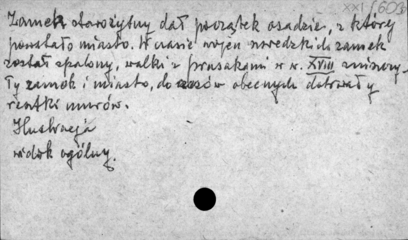 XXI/603
Zamek starożytny dał początek osadzie, z której
powstało miasto. W czasie wojen szwedzkich zamek
został spalony, walki z prusakami w w. XVIII zniszczy-
ły zamek i miasto, do czasów obecnych dotrwały
resztki murów.
Ilustracja
widok ogólny.